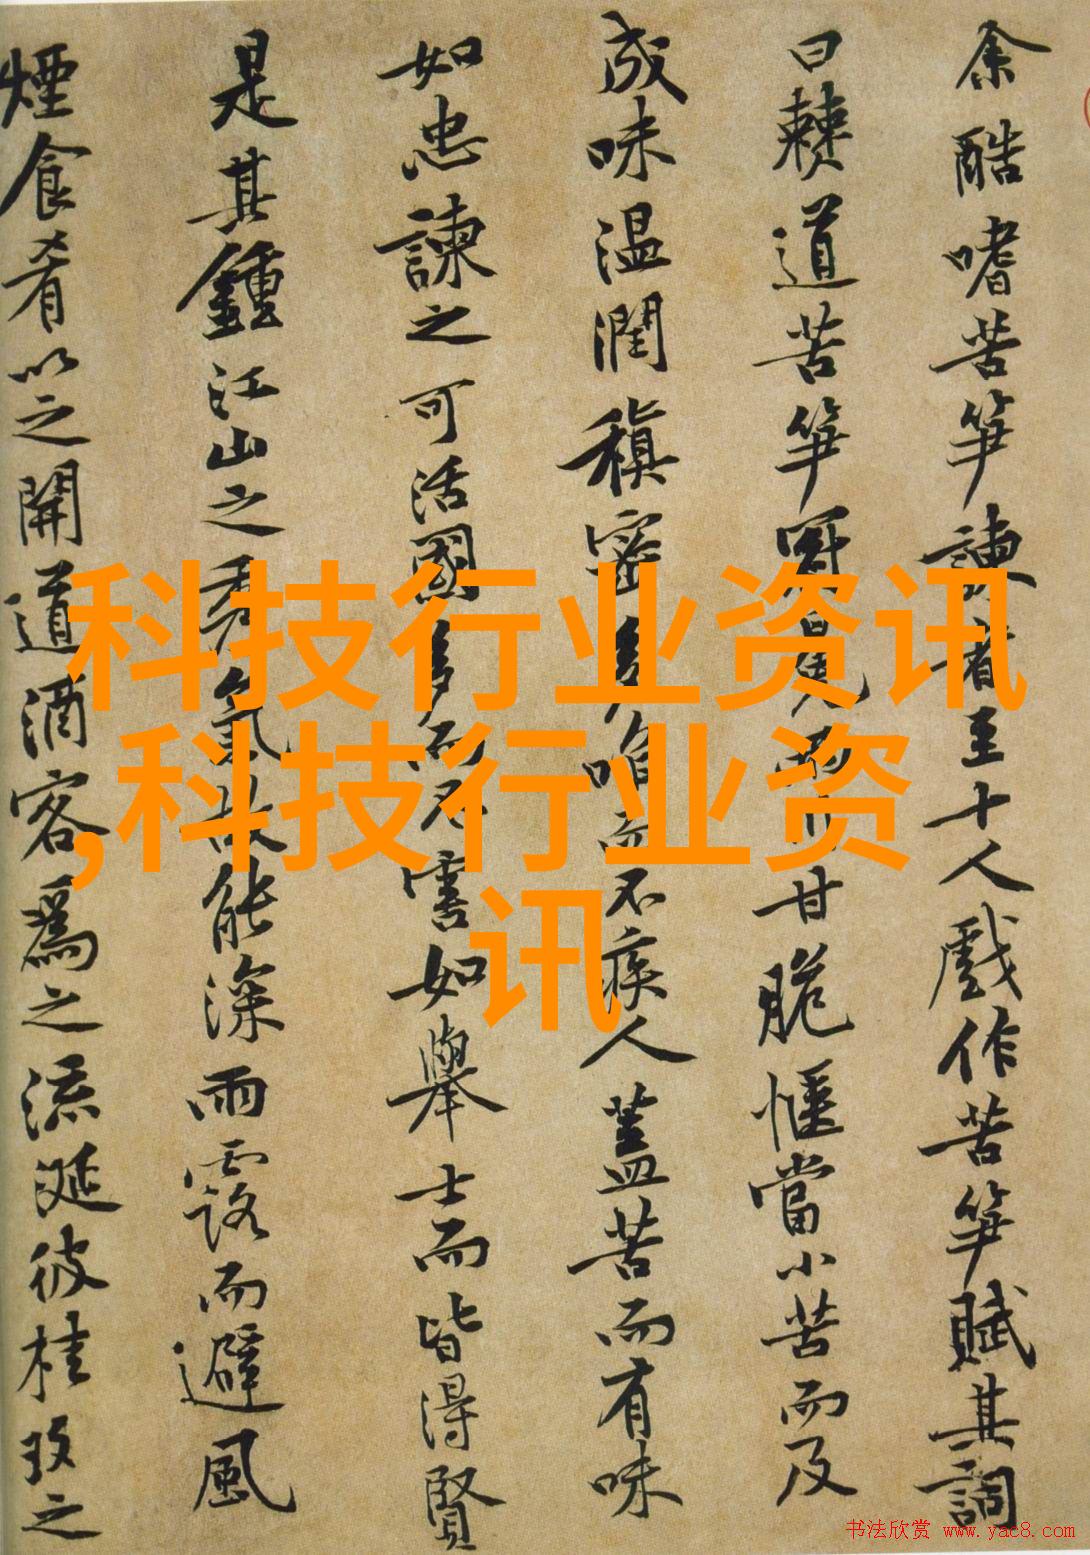 余酷嗜苦笋諫者至十人戲作苦笋賦其詞
曰僰道苦笋冠冕兩川甘脆愜當小苦而及
成味温潤稹密多啗而不疾人蓋苦而有味
如忠諫之可活國多而不害如舉士而皆得賢
是其鍾江山之秀氣故能深雨露而避風
煙食肴以之開道酒客爲之流涎彼桂玫之
科技行业资讯
,科技行业资
讯
书法欣赏 www.yac8.com